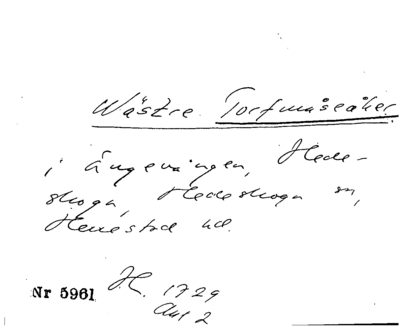 Wästre Torfmåseåker
i Ängevången, Hede-
skoga, Hedeskoga sn,
Herrestad hd.
Nr 5961 H. 1729
Akt 2